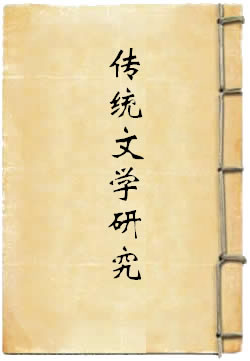 传统文学研究